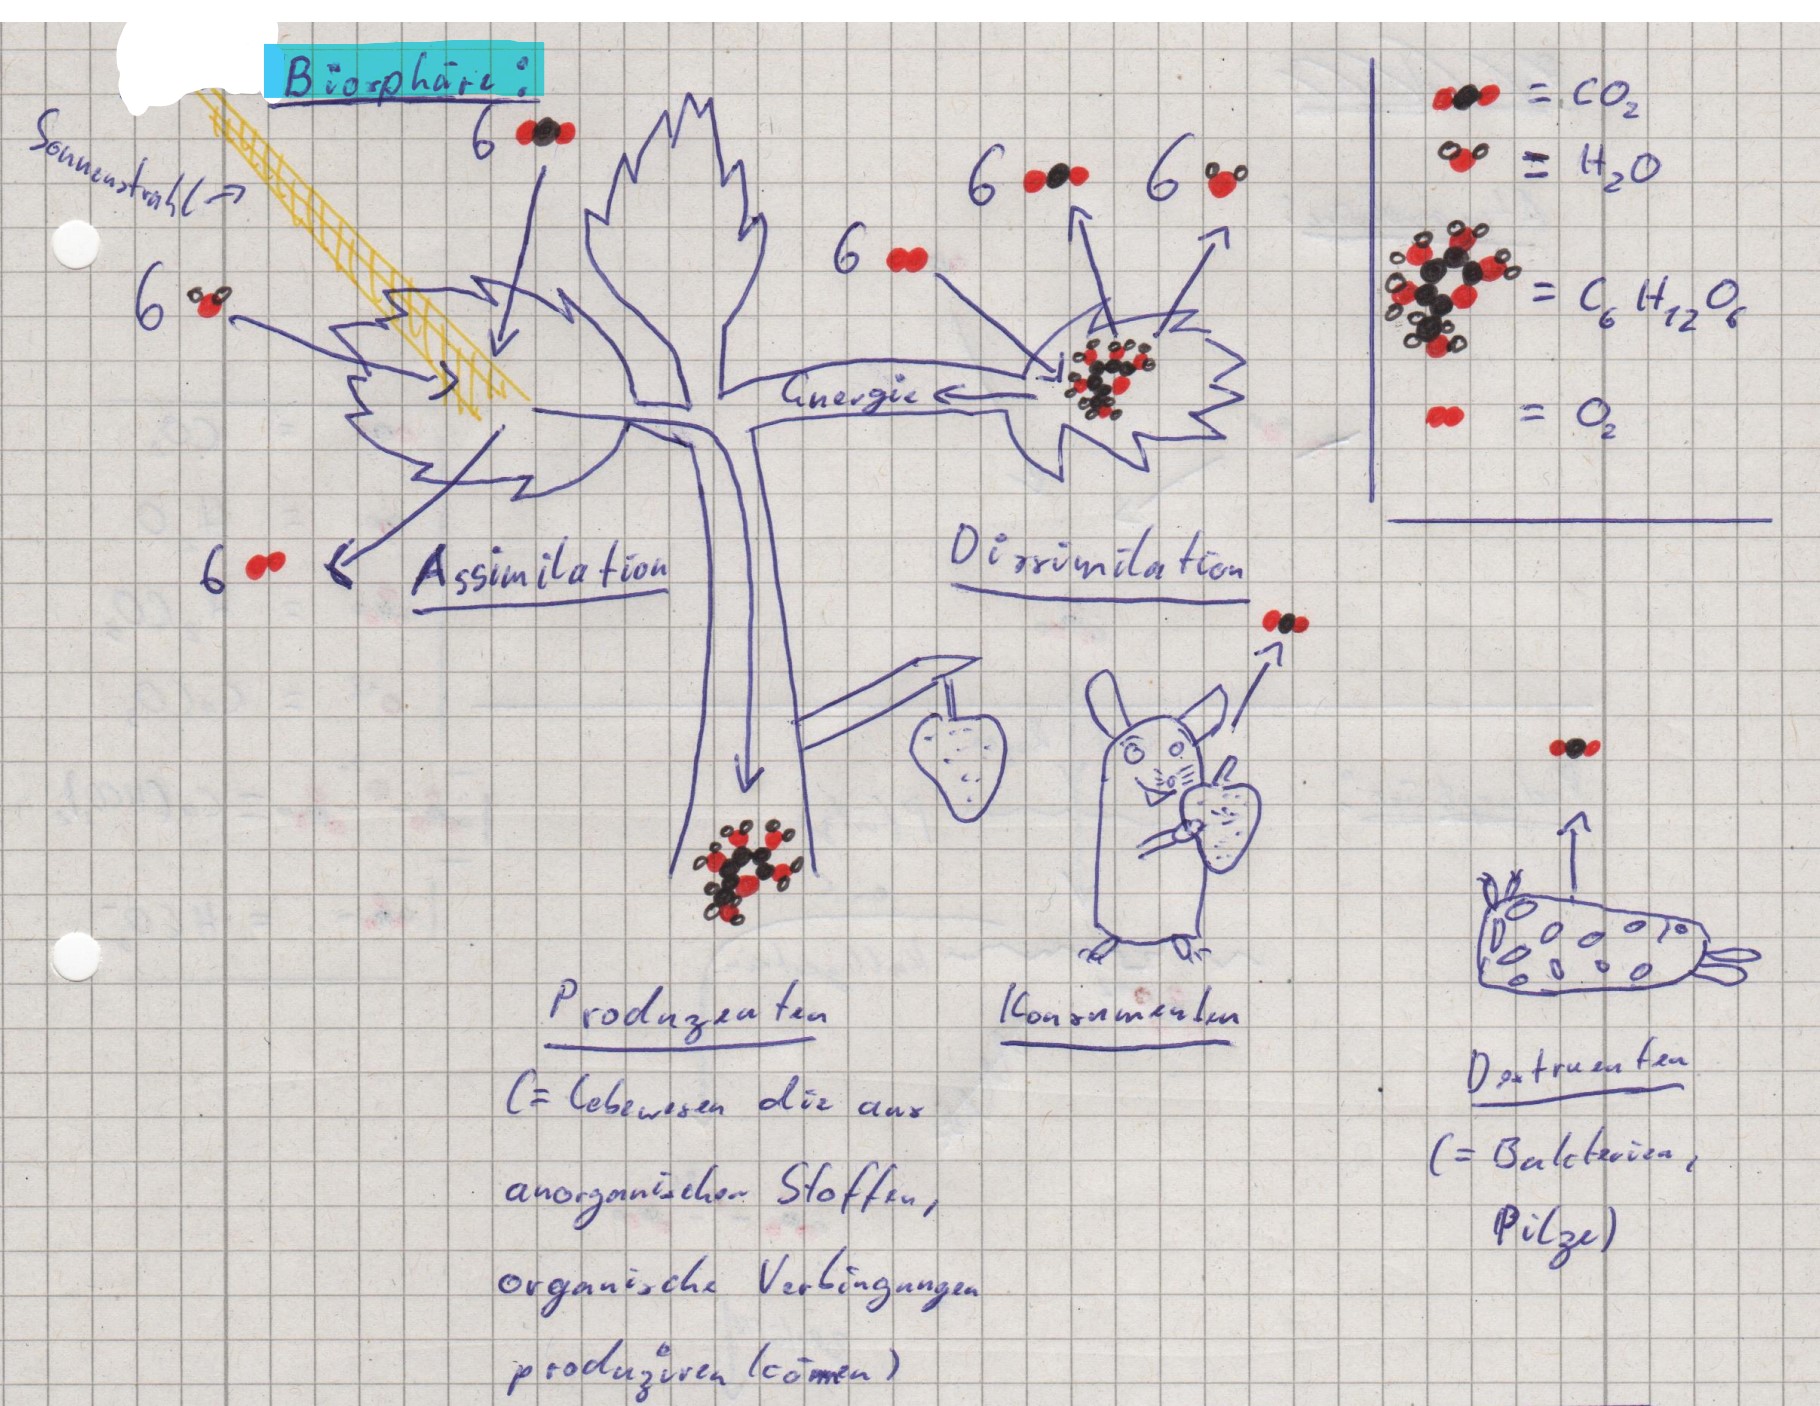 Biosphäre:
Sonnenstrahl →
6
6
6
6
6
6
Energie
Assimilation
Dissimilation
= CO₂
= H₂O
= C₆H₁₂O₆
= O₂
Produzenten
(= Lebewesen die aus
anorganischen Stoffen,
organische Verbingungen
produziren können)
Konsumenten
Destruenten
(= Bakterien,
Pilze)